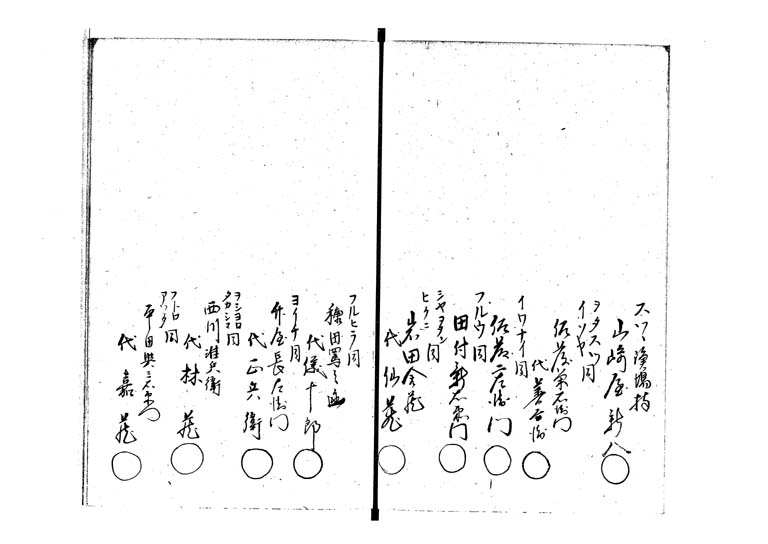 スツツ漁場持
山崎屋新八
ヲタスツ同
イソヤ
佐藤栄右衛門
代善右衛門
イワナイ同
佐藤仁左衛門
フルウ同
田付新右衛門
シヤコタン
ヒクニ同
岩田金蔵
代仙蔵
フルヒラ同
種田篤之丞
代儀十郎
ヨイチ同
竹屋長左衛門
代正兵衛
ヲシヨロ
タカシマ同
西川准兵衛
代林蔵
フトロ
アツタ同
平田與三右衛門
代嘉蔵